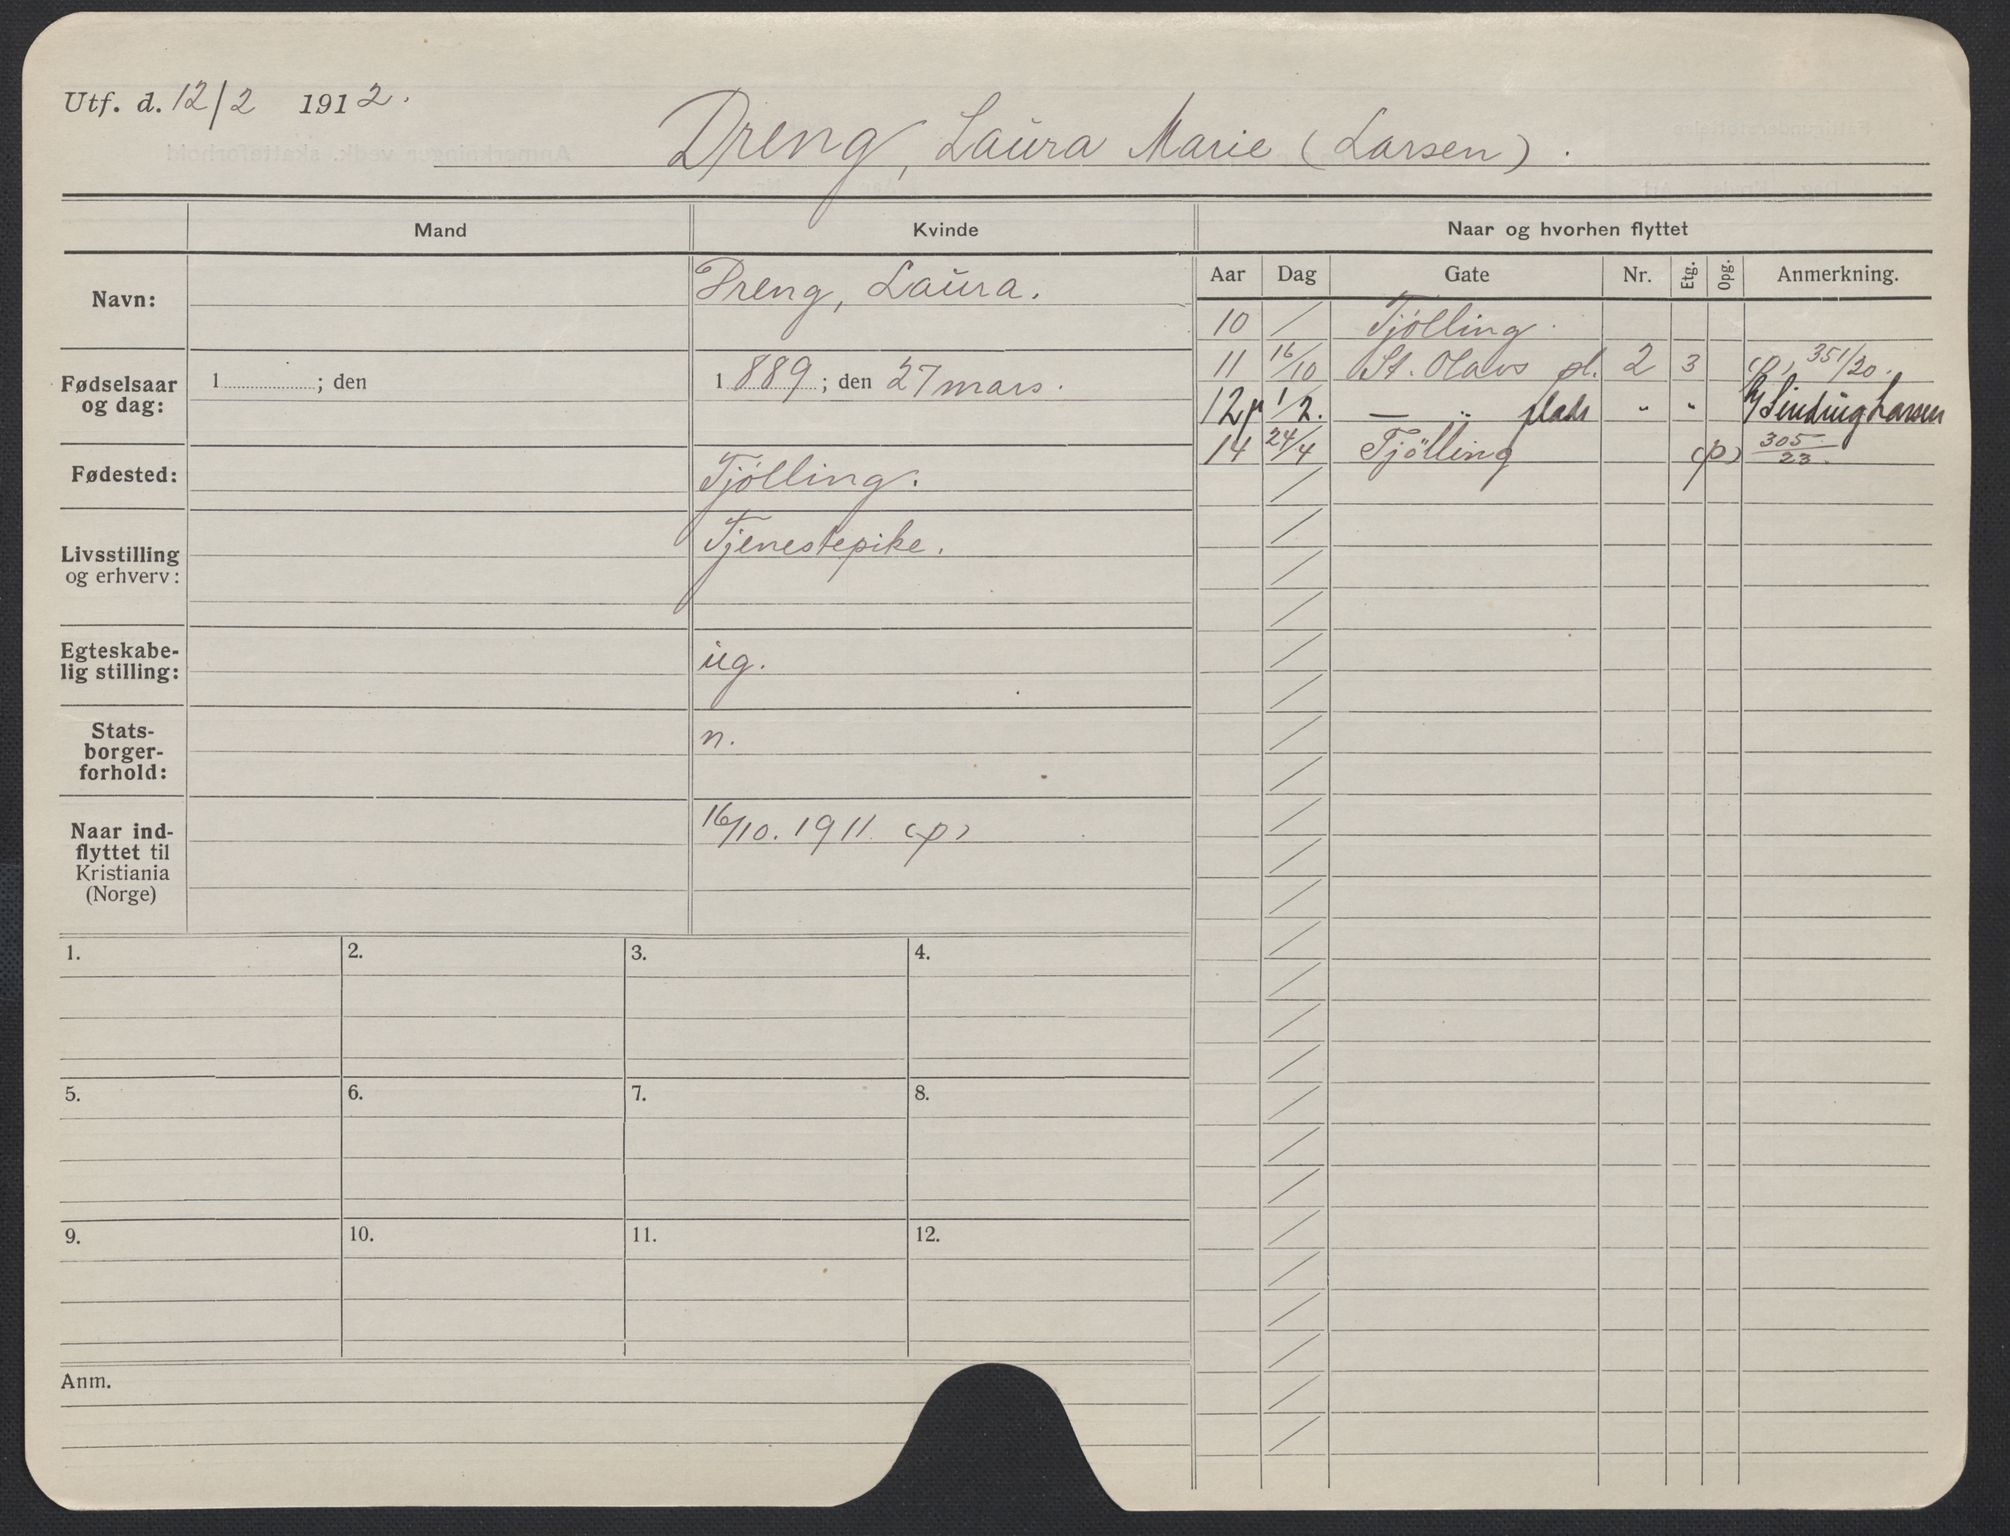 Utf. d. 12/2 1912.
Dreng, Laura Marie (Larsen).
Mand Kvinde Naar og hvorhen flyttet
Aar Dag Gate Nr. Etg. Opg. Anmerkning.
Navn: Dreng, Laura.
Fødselsaar og dag: 1 ; den 1889 ; den 27 mars.
Fødested: Tjölling.
Livsstilling og erhverv: Tjenestepike.
Egteskabe-
lig stilling: ug.
Stats-
borger-
forhold: n.
Naar ind-
flyttet til
Kristiania
(Norge) 16/10. 1911 (p)
10 / Tjölling.
11 16/10 St. Olavs pl. 2 3 (p) 351/20.
12 1/2. — " plads " " Sinding Larsen
14 24/4 Tjölling (p) 305/23.
1. 2. 3. 4.
5. 6. 7. 8.
9. 10. 11. 12.
Anm.